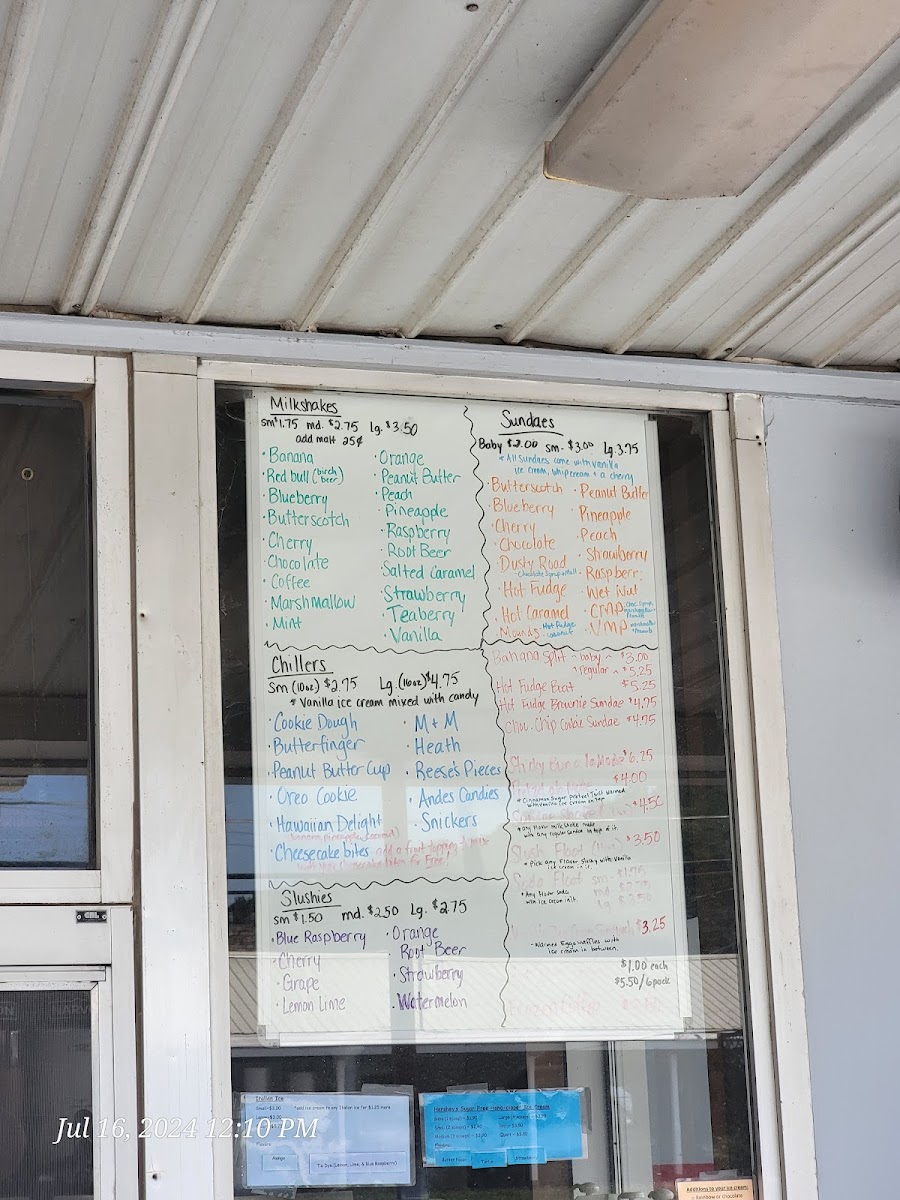 Milkshakes
sm $1.75 md. $2.75 Lg. $3.50
add malt 25¢
· Banana
· Red bull (birch beer)
· Blueberry
· Butterscotch
· Cherry
· Chocolate
· Coffee
· Marshmallow
· Mint
· Orange
· Peanut Butter
· Peach
· Pineapple
· Raspberry
· Root Beer
· Salted Caramel
· Strawberry
· Teaberry
· Vanilla
Sundaes
Baby $2.00 sm- $3.00 Lg. 3.75
* All Sundaes come with vanilla
ice cream, whip cream + a cherry
· Butterscotch
· Blueberry
· Cherry
· Chocolate
· Dusty Road
· Hot Fudge
· Hot Caramel
· Mounds - Hot Fudge
· Peanut Butter
· Pineapple
· Peach
· Strawberry
· Raspberr
· Wet Nut
· CMP
· VMP
Chillers
Sm (10oz) $2.75 Lg. (16oz) $4.75
* Vanilla ice cream mixed with candy
· Cookie Dough
· Butterfinger
· Peanut Butter Cup
· Oreo Cookie
· Hawaiian Delight
· Cheesecake bites
· M + M
· Heath
· Reese's Pieces
· Andes Candies
· Snickers
Banana Split - baby - $3.00
* regular - $5.25
Hot Fudge Boat $5.25
Hot Fudge Brownie Sundae $4.75
Choc. Chip Cookie Sundae $4.75
$6.25
$4.00
* Cinnamon Sugar Pretzel Twist warmed
with vanilla ice cream on top
$4.50
* any flavor milkshake made
with any regular sundae on top of it.
Slush Float $3.50
* Pick any Flavor Slushy with Vanilla
ice cream in it.
Soda Float sm - $1.75
* Any flavor soda
with ice cream in it.
$3.25
- Warmed Eggo Waffles with
ice cream in between.
$1.00 each
$5.50/6pack
Slushies
sm $1.50 md. $2.50 Lg. $2.75
· Blue Raspberry
· Cherry
· Grape
· Lemon Lime
· Orange
Root Beer
· Strawberry
· Watermelon
Italian Ice
Mango
Additions to your ice cream:
Jul 16, 2024 12:10 PM